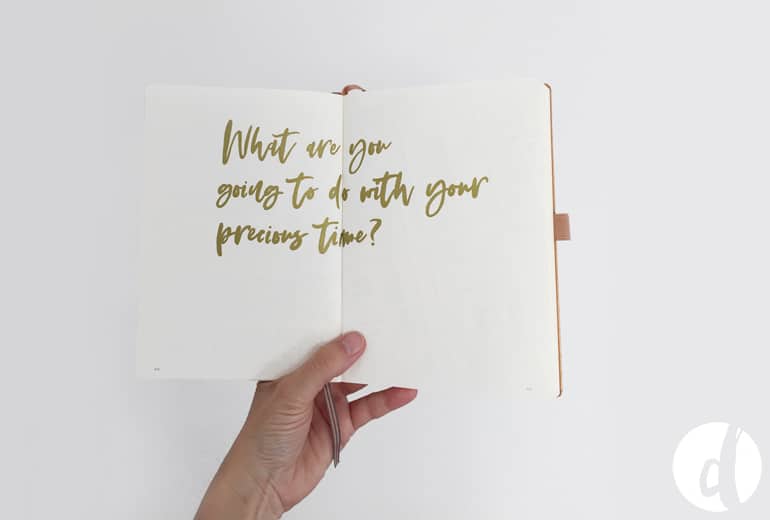 What are you
going to do with your
precious time?
d